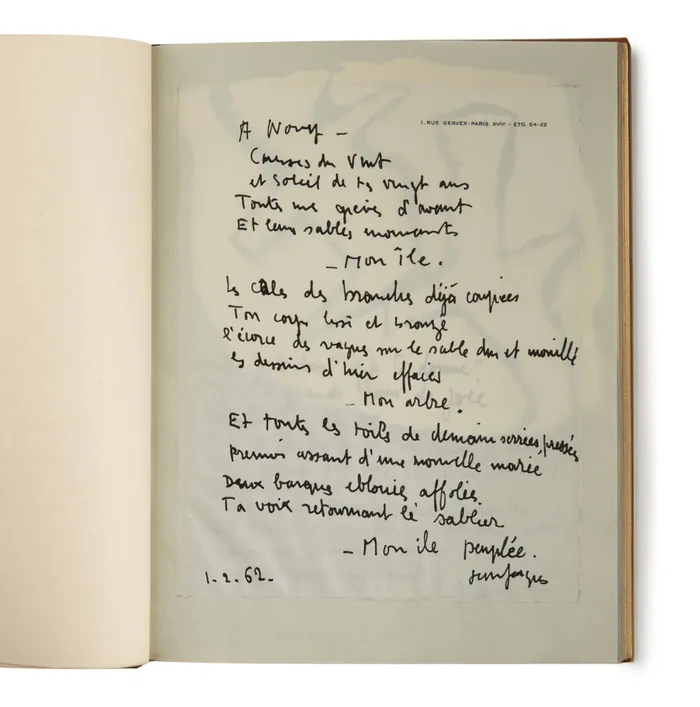 1, RUE GERVEX-PARIS XVIIᵉ - ETO. 54-22
A
Courses du Vent
et Soleil de tes vingt ans
Toutes mes grèves d'avant
Et leurs sables mouvants
_ Mon île.
des branches déjà coupées
Ton corps lissé et bronzé
l'écorce des vagues sur le sable dur et mouillé
les dessins d'hier effacés
_ Mon arbre.
Et toutes les toiles de demain serrées, pressées
premier assaut d'une nouvelle marée
Deux barques éblouies affolées.
Ta voix retournant le sablier
_ Mon ile peuplée.
1.2.62.